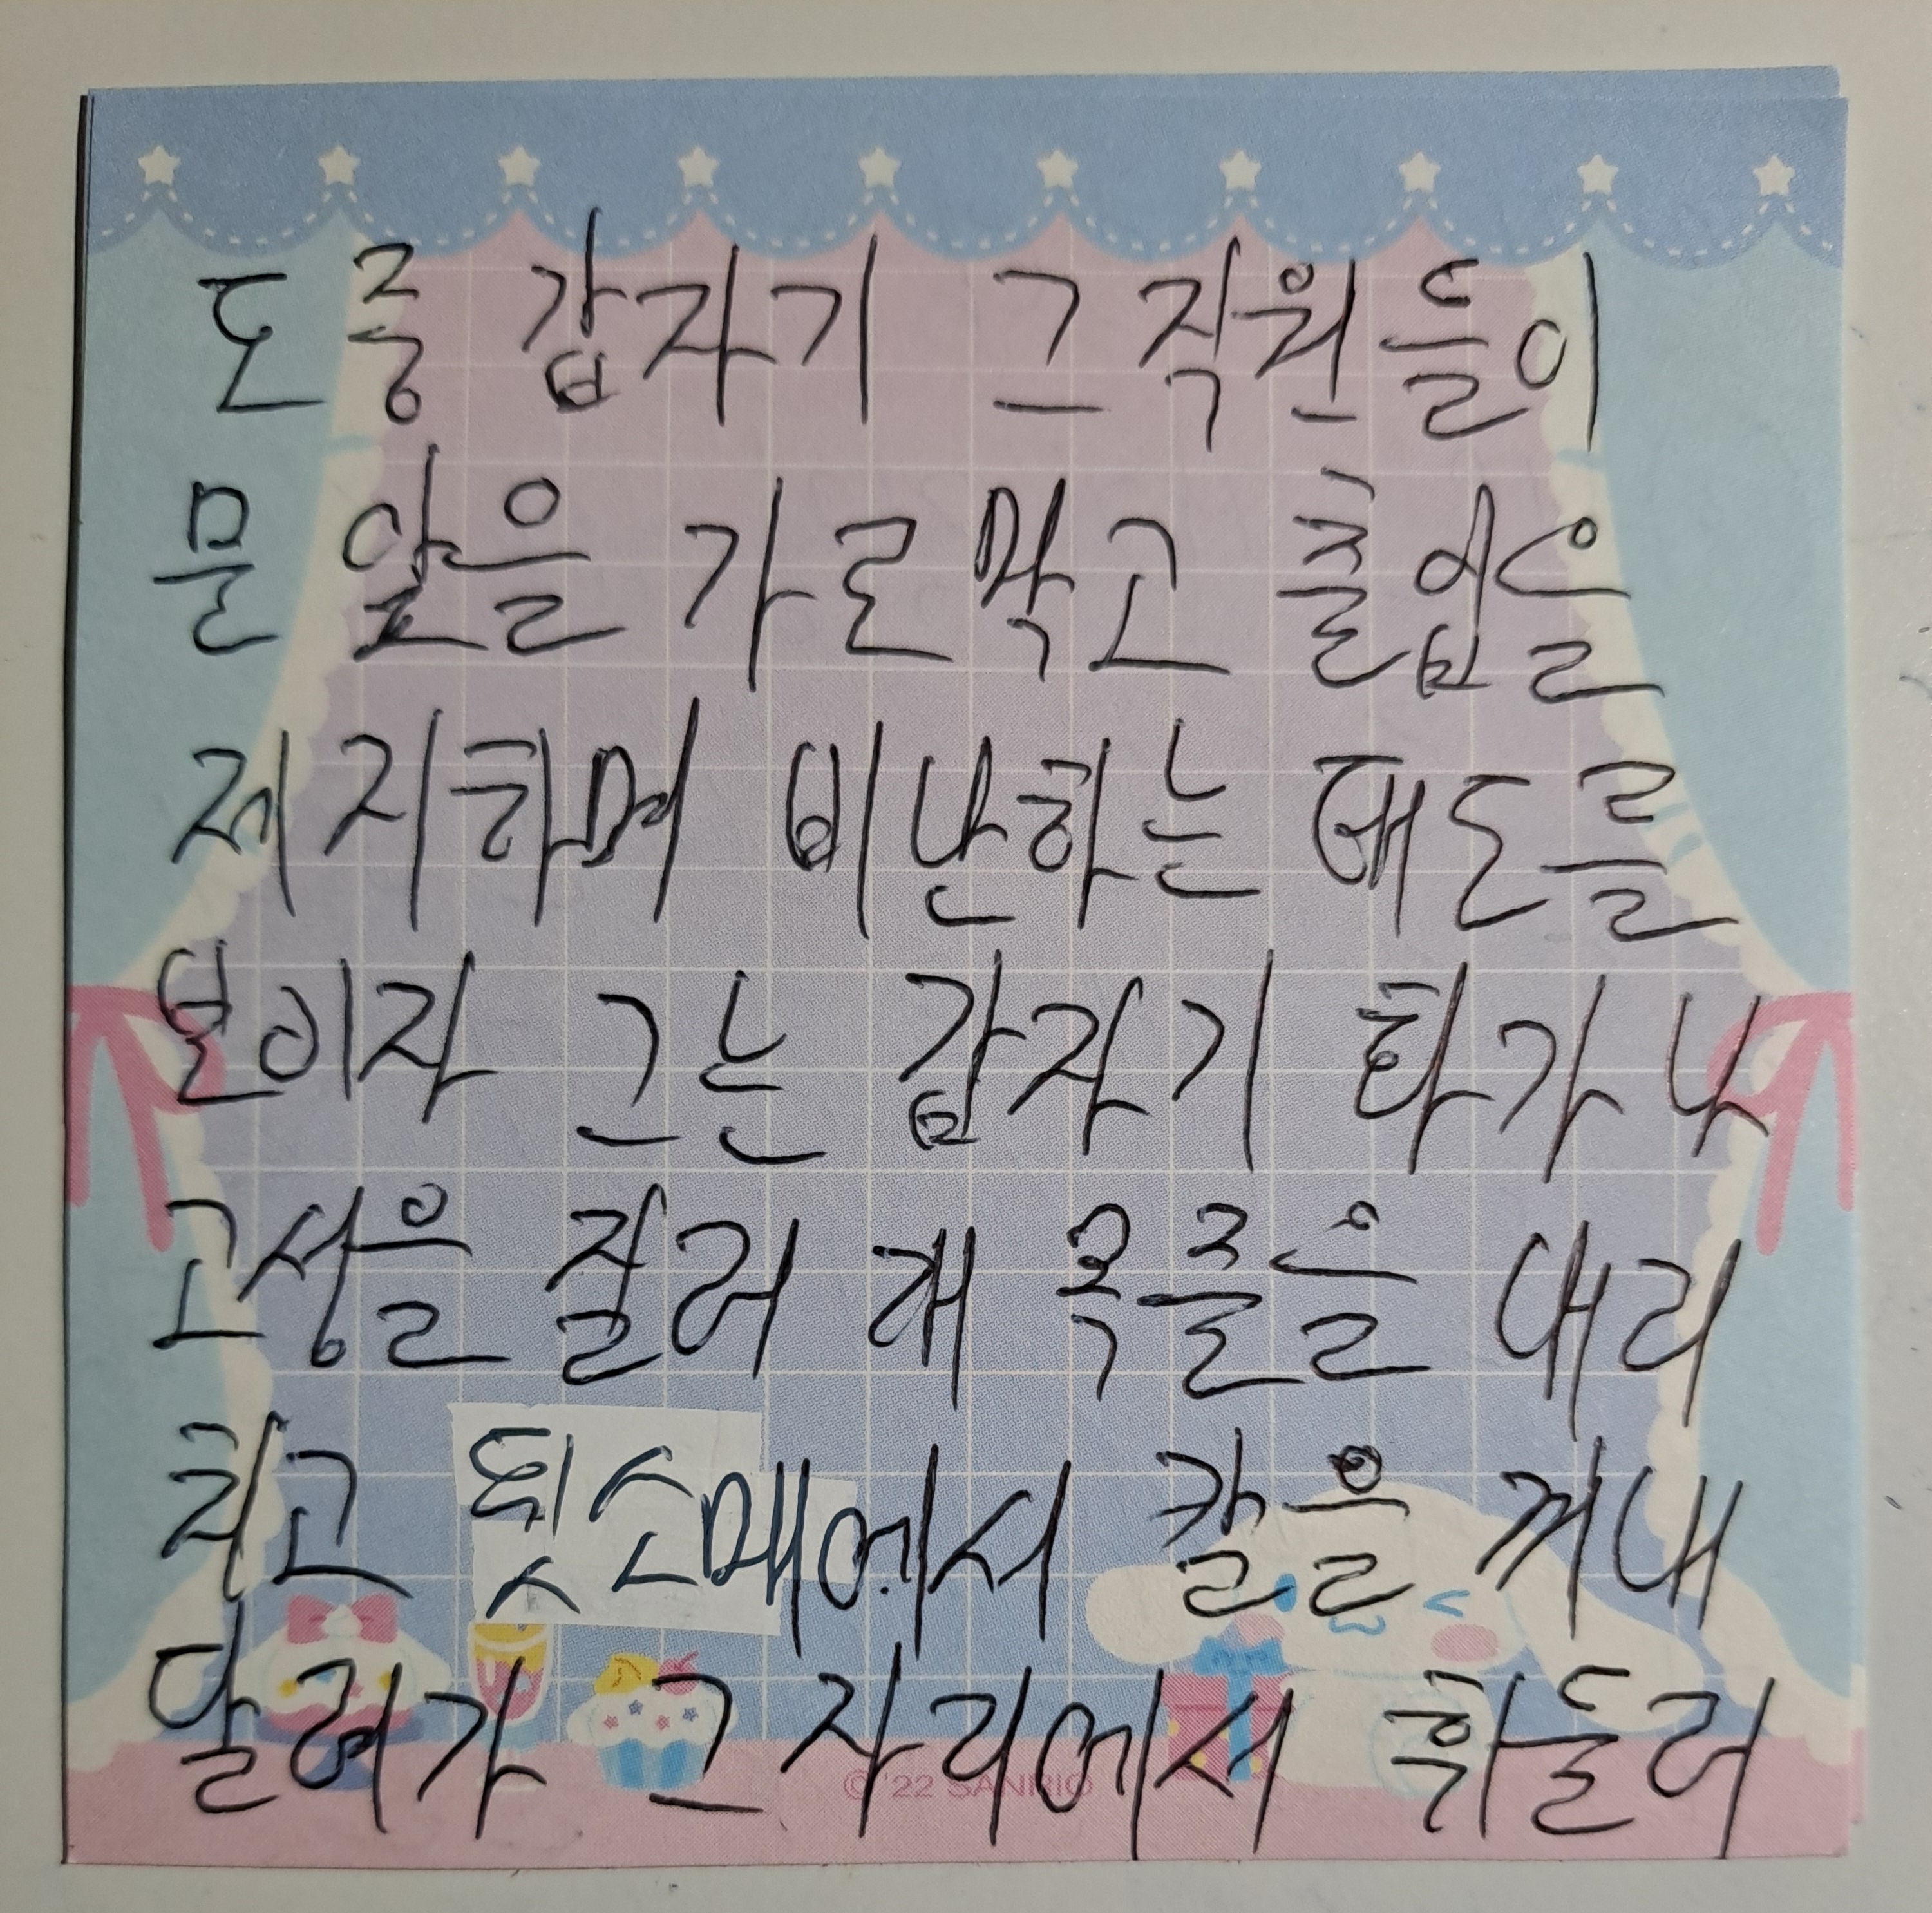 도중 갑자기 그 직원들이
문 앞을 가로막고 출입을
제지하며 비난하는 태도를
보이자 그는 갑자기 화가 나
고성을 질러 개 목줄을 내리
치고 뒷소매에서 칼을 꺼내
달려가 그 자리에서 휘둘러
© '22 SANRIO